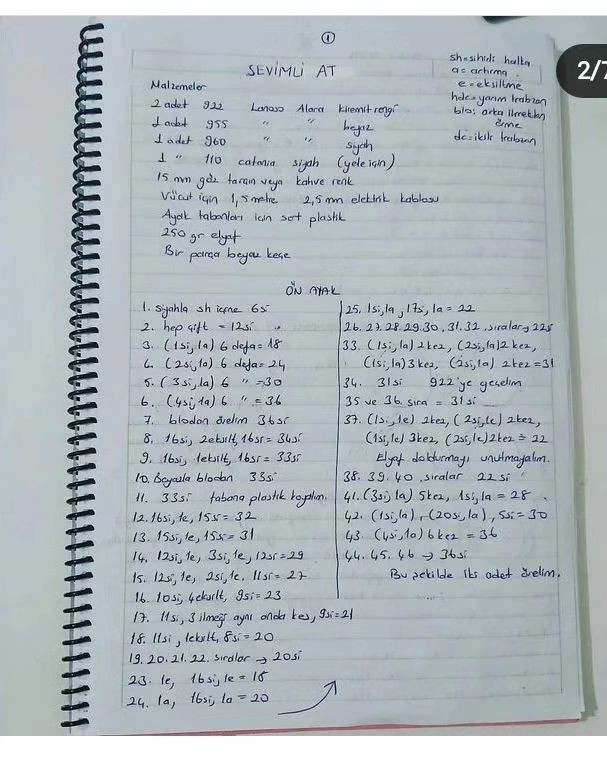 1
2/7
SEVİMLİ AT
sh=sihirli halka
a= artırma
e=eksiltme
hdc=yarım trabzan
blo: arka ilmekten
örme
dc=ikili trabzan
Malzemeler
2 adet 922 Lanoso Alara kiremit rengi
1 adet 955 " " beyaz
1 adet 960 " " siyah
1 " 110 catania siyah (yele için)
15 mm göz tarçın veya kahve renk
Vücut için 1,5 metre 2,5 mm elektrik kablosu
Ayak tabanları için sert plastik
250 gr elyaf
Bir parça beyaz keçe
ÖN AYAK
1. siyahla sh içine 6si
2. hep çift = 12si
3. (1si,1a) 6 defa = 18
4. (2si,1a) 6 defa = 24
5. (3si,1a) 6 " = 30
6. (4si,1a) 6 " = 36
7. blodan örelim 36si
8. 16si, 2eksilt, 16si = 34si
9. 16si, 1eksilt, 16si = 33si
10. Beyazla blodan 33si
11. 33si tabana plastik koyalım.
12. 16si, 1e, 15si = 32
13. 15si, 1e, 15si = 31
14. 12si, 1e, 3si, 1e, 12si = 29
15. 12si, 1e, 2si, 1e, 11si = 27
16. 10si, 4eksilt, 9si = 23
17. 11si, 3 ilmeği aynı anda kes, 9si = 21
18. 11si, 1eksilt, 8si = 20
19. 20. 21. 22. sıralar → 20si
23. 1e, 16si, 1e = 18
24. 1a, 16si, 1a = 20
25. 1si, 1a, 17si, 1a = 22
26. 27. 28. 29. 30. 31. 32. sıralar → 22si
33. (1si, 1a) 2 kez, (2si, 1a) 2 kez,
(1si, 1a) 3 kez, (2si, 1a) 2 kez = 31
34. 31si 922'ye geçelim
35 ve 36. sıra = 31 si
37. (1si, 1e) 2kez, (2si, 1e) 2kez,
(1si, 1e) 3kez, (2si, 1e) 2kez = 22
Elyaf doldurmayı unutmayalım.
38. 39. 40. sıralar 22 si
41. (3si, 1a) 5kez, 1si, 1a = 28
42. (1si, 1a), (20si, 1a), 5si = 30
43. (4si, 1a) 6 kez = 36
44. 45. 46 → 36si
Bu şekilde iki adet örelim.